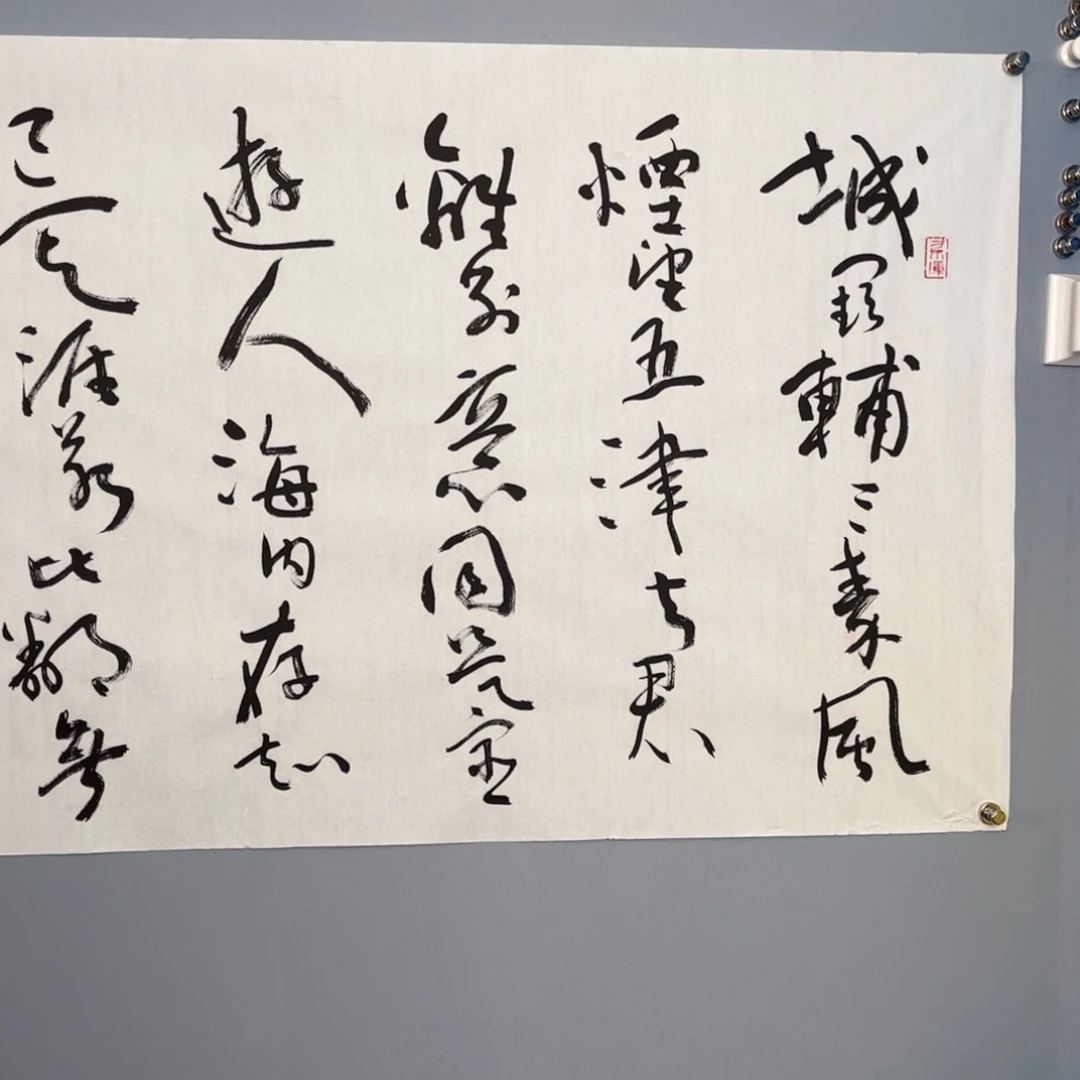 城闕輔三秦風
煙望五津与君
離別意同是宦
遊人海內存知
己天涯若比鄰無